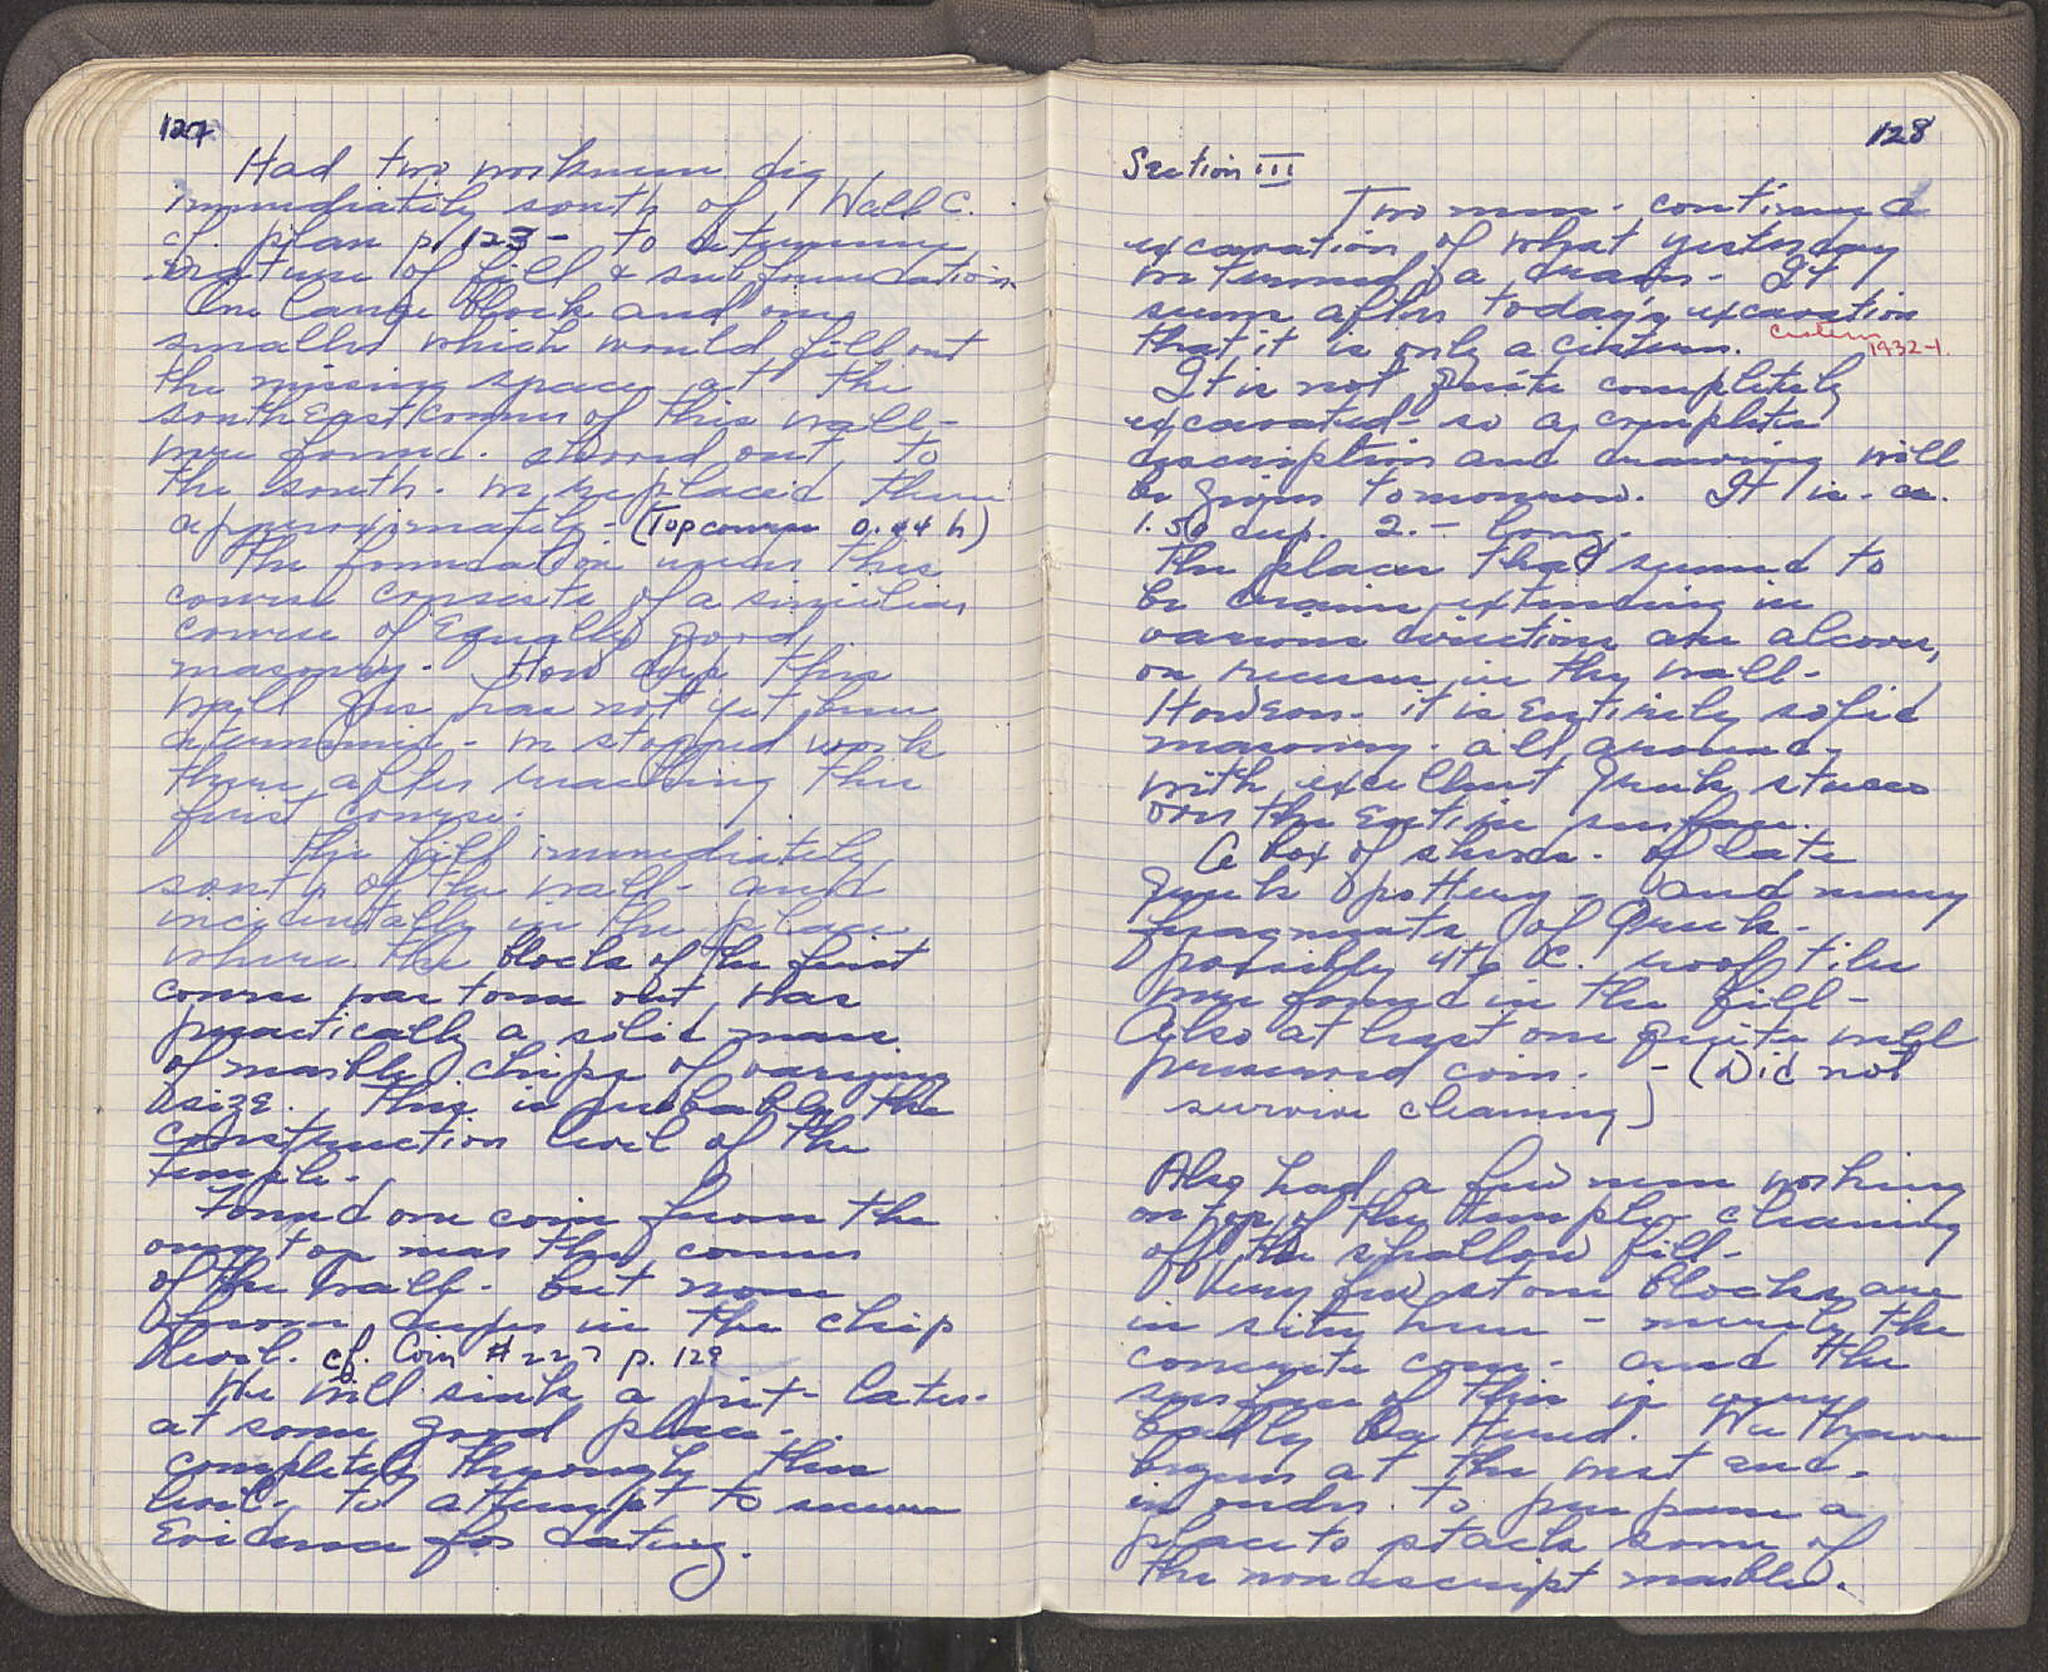 127
Had two workmen dig
immediately south of Wall C.
cf. plan p. 123 - to determine
nature of fill & subfoundation.
One large block and one
smaller which would fill out
the missing space at the
southeast corner of this wall -
were found. shoved out to
the south. We replaced them
approximately - (Top course 0.44 h)
The foundation under this
course consists of a similar
course of equally good
masonry. How deep this
wall goes has not yet been
determined - We stopped work
there after reaching the
first course.
The fill immediately
south of the wall - and
incidentally in the place
where the blocks of the first
course was torn out, was
practically a solid mass
of marble chips of varying
size. This is probably the
construction level of the
temple.
Found one coin from the
very top near the corner
of the wall - but none
from deeper in the chip
level. cf. Coin # 227 p. 129
We will sink a pit - later -
at some good place -
completely through this
level, to attempt to secure
evidence for dating.
128
Section III
Two men - continued
excavation of what yesterday
we termed a drain. It
seems after today's excavation
that it is only a cistern. Cistern
1932-1.
It is not quite completely
excavated - so a complete
description and drawing will
be given tomorrow. It is - ca.
1.50 deep. 2.- long.
The places that seemed to
be drains extending in
various directions are alcoves,
or recesses in the wall -
However - it is entirely solid
masonry - all around -
with excellent Greek stucco
over the entire surface.
A box of sherds - of late
Greek pottery - and many
fragments of Greek -
possibly 4th C. roof tiles
were found in the fill -
Also at least one quite well
preserved coin. - (Did not
survive cleaning)
Also had a few men working
on top of the temple cleaning
off the shallow fill -
Very few stone blocks are
in situ here - merely the
concrete core - and the
surface of this is very
badly battered. We have
begun at the west end -
in order to prepare a
place to stack some of
the nondescript marbles.